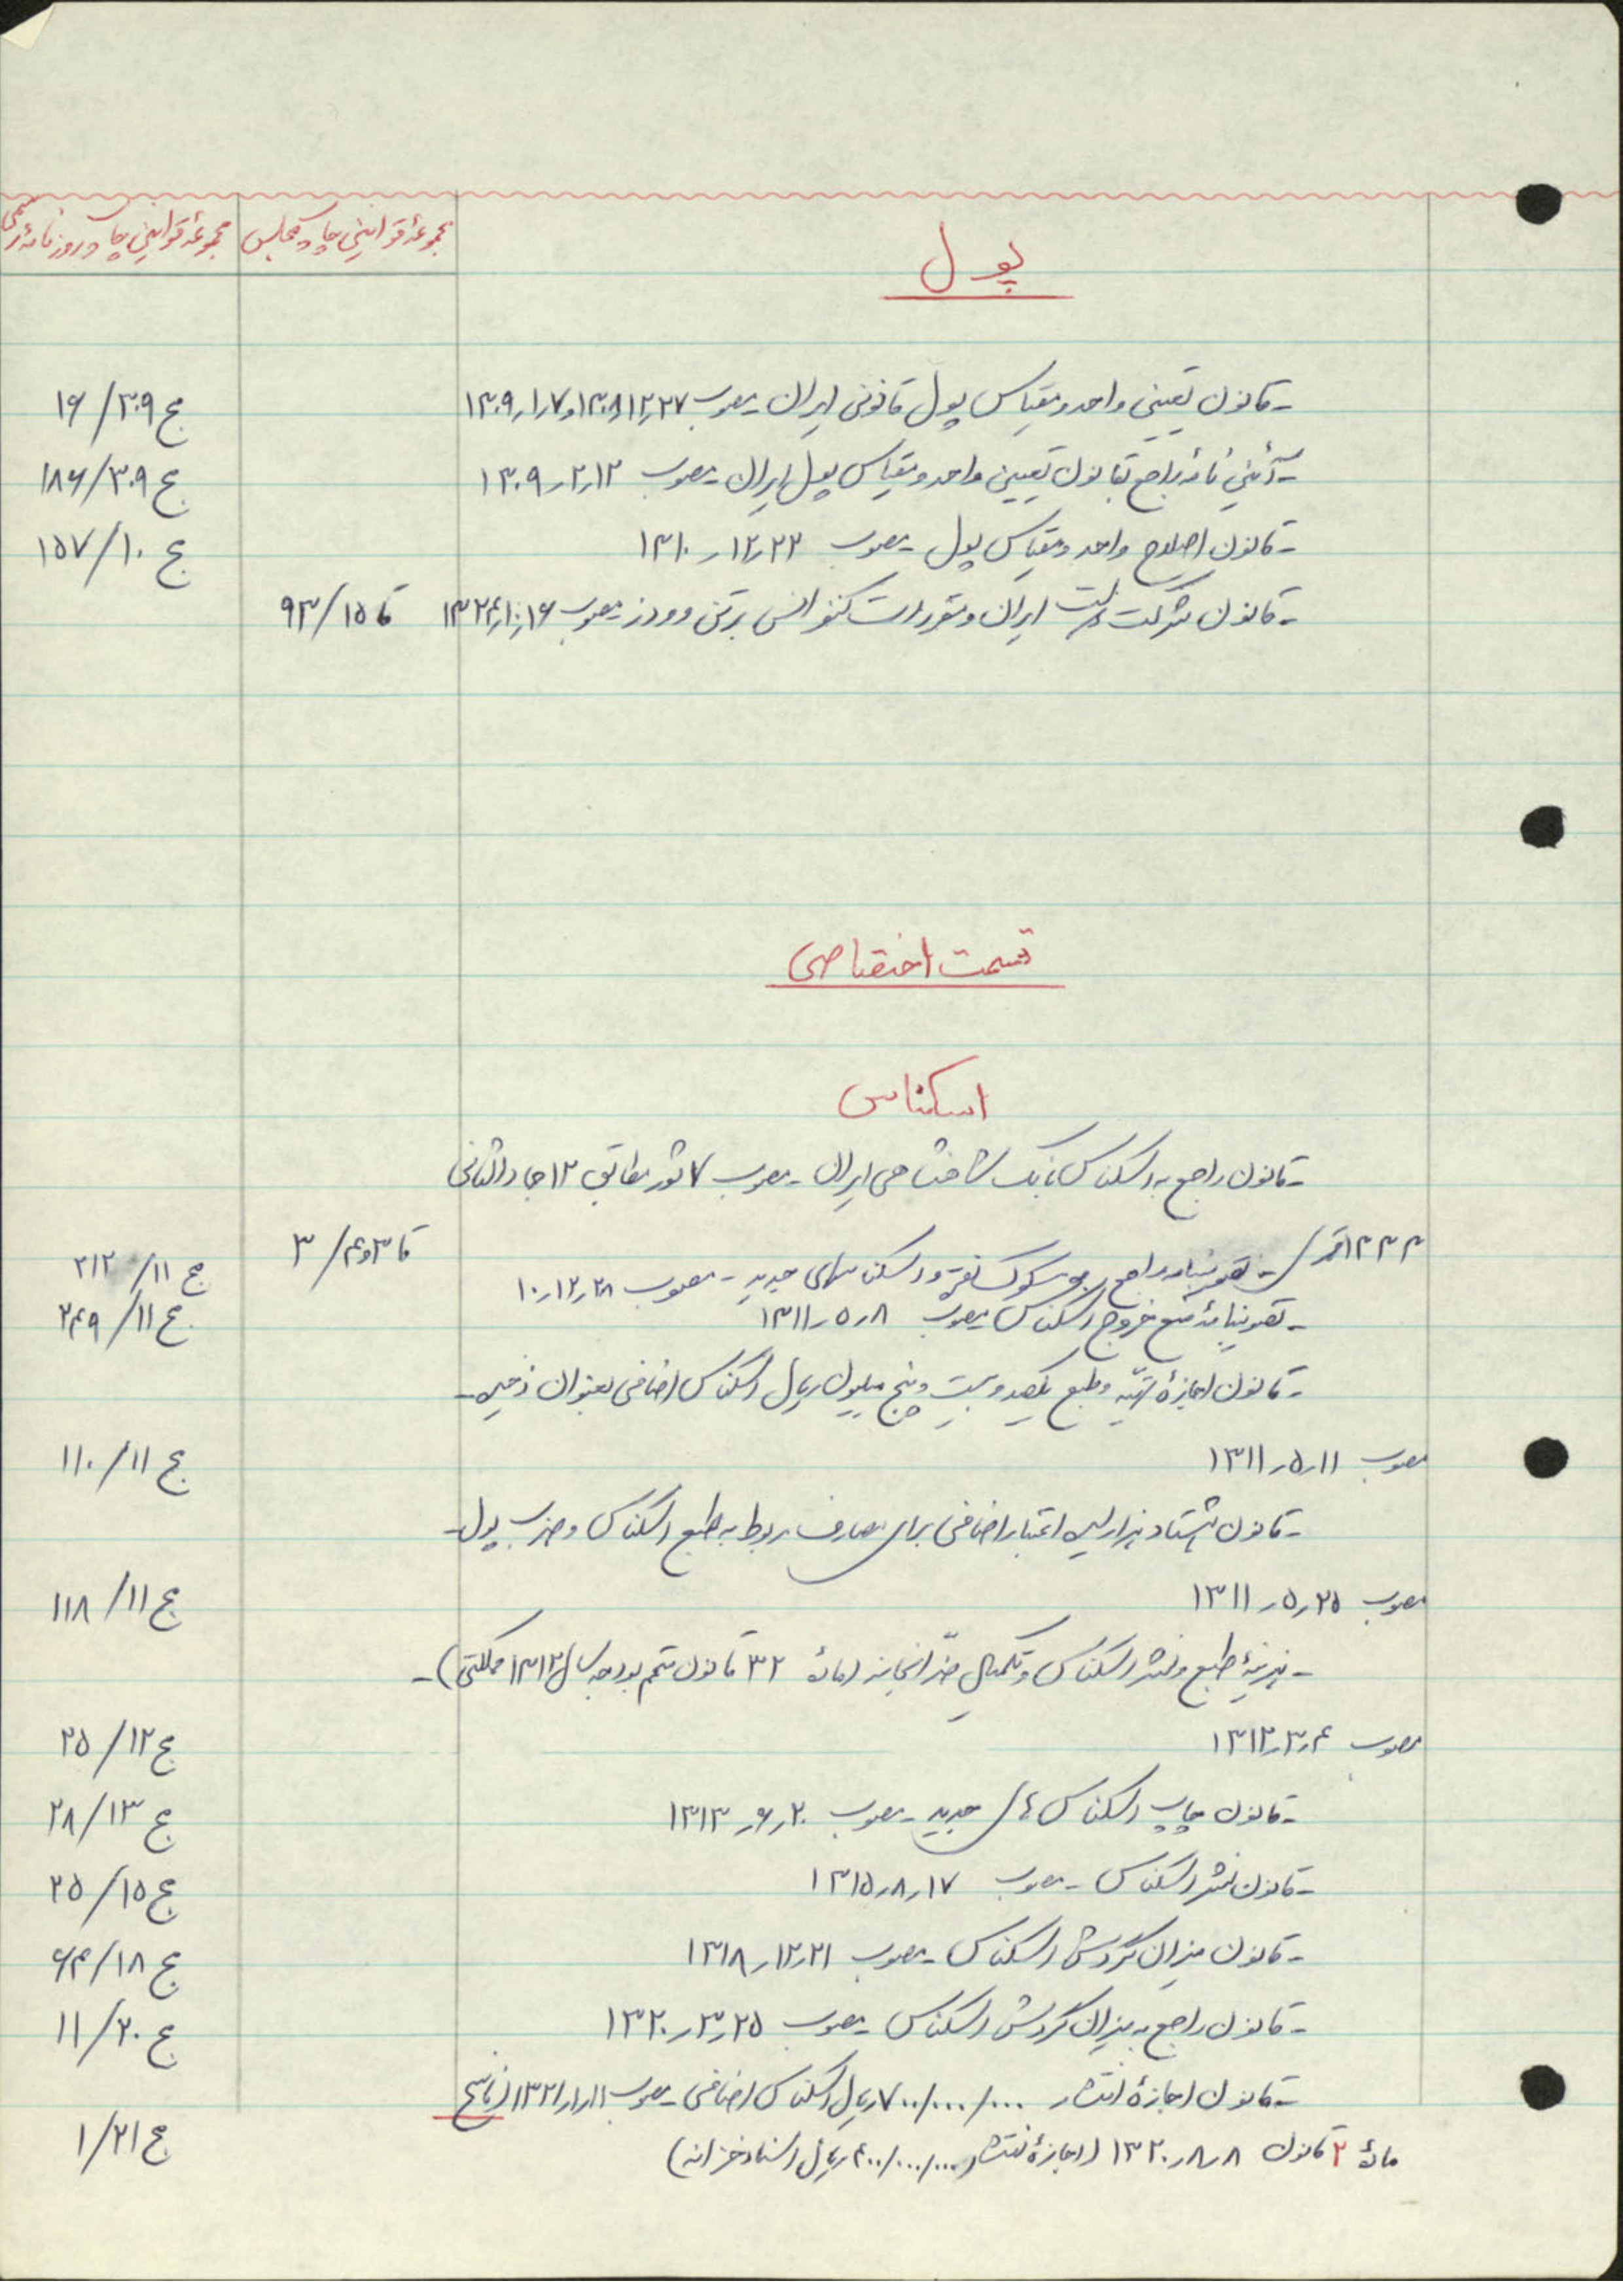 پول
مجموعهٔ قوانین چاپ مجلس
مجموعهٔ قوانین چاپ روزنامهٔ رسمی
- قانون تعیین واحد و مقیاس پول قانونی ایران - مصوب ۲۷ر۱۲ر۱۳۰۸ و ۷ر۱ر۱۳۰۹ ج ۳۰۹/ ۱۶
- آئین نامهٔ راجع بقانون تعیین واحد و مقیاس پول ایران - مصوب ۱۳ر۲ر۱۳۰۹ ج ۳۰۹/ ۱۸۶
- قانون اصلاح واحد و مقیاس پول - مصوب ۲۲ر۱۲ر۱۳۱۰ ج ۱۰/ ۱۵۷
- قانون شرکت دولت ایران و مقررات کنفرانس برتن وودز - مصوب ۱۶ر۱۰ر۱۳۲۴ قا ۱۵/ ۹۳
قسمت اختصاصی
اسکناس
- قانون راجع به اسکناس بانک شاهنشاهی ایران - مصوب ۷ ثور مطابق ۱۲ جمادالثانی
۱۳۳۳ قمری قا ۳ و ۴/ ۳
- تصویبنامه راجع به مسکوک نقره و اسکناسهای جدید - مصوب ۲۸ر۱۲ر۱۰ ج ۱۱/ ۲۱۲
- تصویبنامهٔ منع خروج اسکناس مصوب ۸ر۵ر۱۳۱۱ ج ۱۱/ ۲۴۹
- قانون اجازهٔ تهیّه و طبع یکصد و بیست و پنج میلیون ریال اسکناس اضافی بعنوان ذخیره -
مصوب ۱۱ر۵ر۱۳۱۱ ج ۱۱/ ۱۱۰
- قانون هشتاد هزار لیره اعتبار اضافی برای مصارف مربوط به طبع اسکناس و ضرب پول -
مصوب ۲۵ر۵ر۱۳۱۱ ج ۱۱/ ۱۱۸
- هزینهٔ طبع و نشر اسکناس و تکمیل ضرّابخانه (مادهٔ ۳۲ قانون متمم بودجه سال ۱۳۱۲ مملکتی) -
مصوب ۴ر۳ر۱۳۱۲ ج ۱۲/ ۲۵
- قانون چاپ اسکناس های جدید - مصوب ۲۰ر۶ر۱۳۱۳ ج ۱۳/ ۲۸
- قانون نشر اسکناس - مصوب ۱۷ر۸ر۱۳۱۵ ج ۱۵/ ۲۵
- قانون میزان گردش اسکناس - مصوب ۲۱ر۱۲ر۱۳۱۸ ج ۱۸/ ۶۴
- قانون راجع به میزان گردش اسکناس - مصوب ۲۵ر۳ر۱۳۲۰ ج ۲۰/ ۱۱
- قانون اجازهٔ انتشار ۷۰۰/۰۰۰/۰۰۰ ریال اسکناس اضافی - مصوب ۱۱ر۱ر۱۳۲۱ (ناسخ
مادهٔ ۲ قانون ۸ر۸ر۱۳۲۰ (اجازهٔ انتشار ۴۰۰/۰۰۰/۰۰۰ ریال اسناد خزانه) ج ۲۱/ ۱